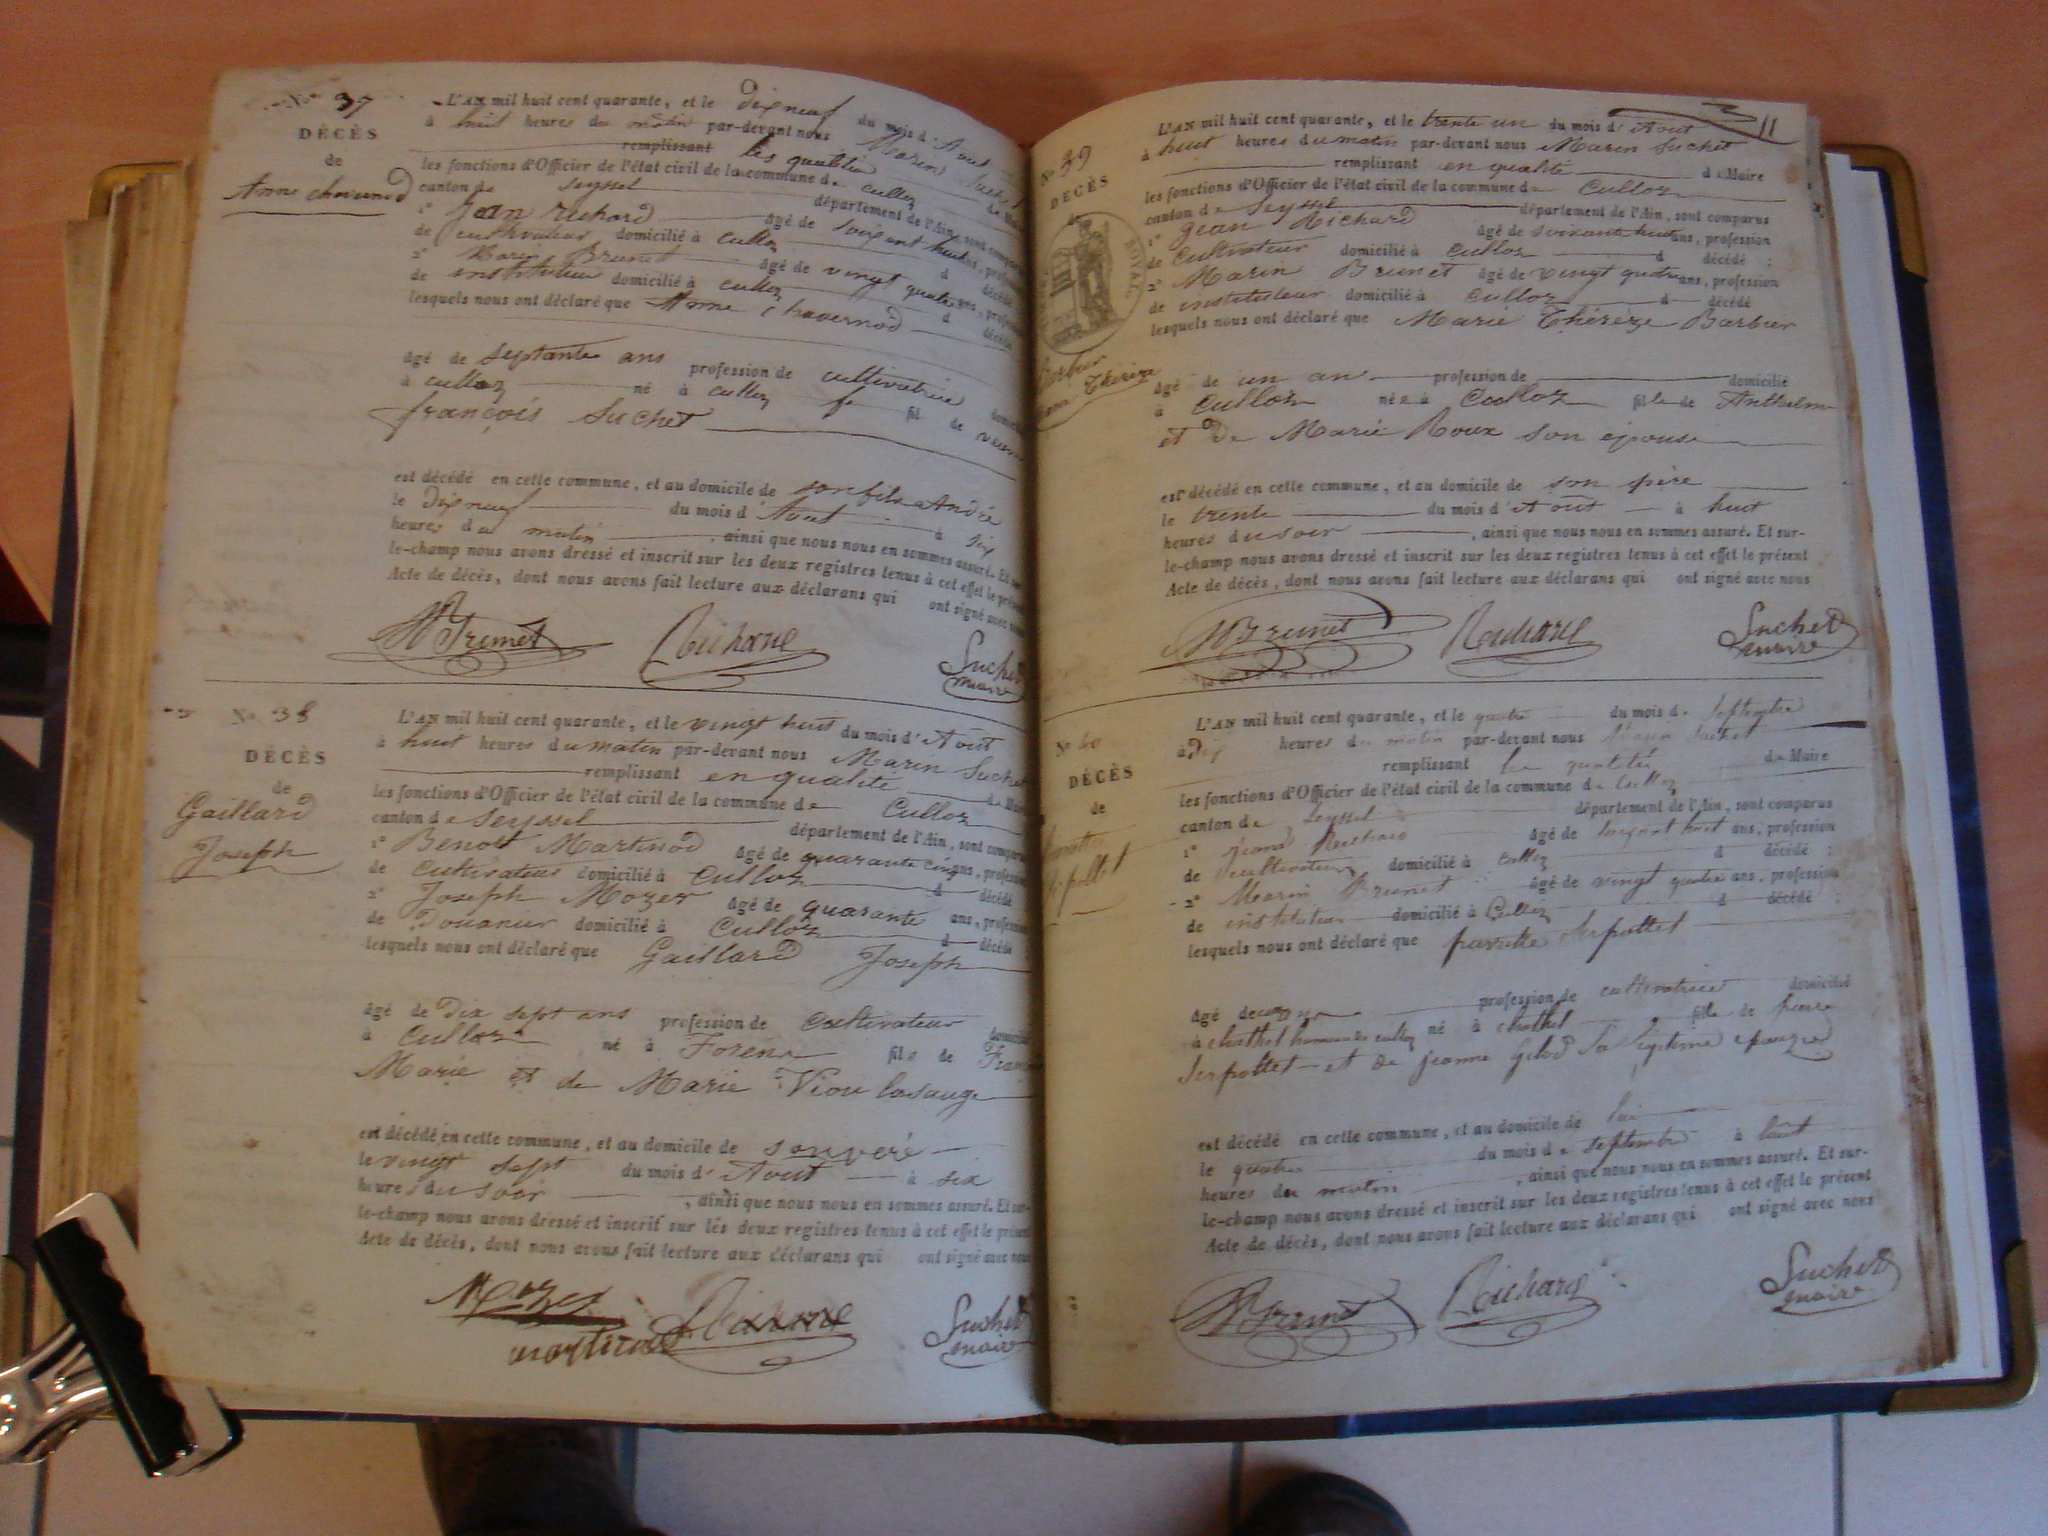 N° 37
DÉCÈS
de
Anne chavernod
L'AN mil huit cent quarante, et le Dix neuf du mois d'Aout
à huit heures du matin par-devant nous Marin Suchet
remplissant les qualités de Maire
les fonctions d'Officier de l'état civil de la commune de culloz
canton de seyssel département de l'Ain, sont comparus
1° Jean Richard âgé de soixant huit ans, profession
de cultivateur domicilié à culloz d décédé
2° Marin Brunet âgé de vingt quatre ans, profession
de instituteur domicilié à culloz d décédé
lesquels nous ont déclaré que Anne Chavernod
âgé de septante ans profession de cultivatrice domicilié
à culloz né à culloz fil de veuve
françois Suchet
est décédé en cette commune, et au domicile de son fils André
le Dix neuf du mois d'Aout à six
heures du matin, ainsi que nous nous en sommes assuré. Et sur-
le-champ nous avons dressé et inscrit sur les deux registres tenus à cet effet le présent
Acte de décès, dont nous avons fait lecture aux déclarans qui ont signé avec nous
M Brunet Richard Suchet
maire
N° 38
DÉCÈS
de
Gaillard
Joseph
L'AN mil huit cent quarante, et le vingt huit du mois d'Aout
à huit heures du matin par-devant nous Marin Suchet
remplissant en qualité de Maire
les fonctions d'Officier de l'état civil de la commune de Culloz
canton de Seyssel département de l'Ain, sont comparus
1° Benoit Martinod âgé de quarante cinq ans, profession
de Cultivateur domicilié à Culloz d décédé
2° Joseph Mozer âgé de quarante ans, profession
de Douanier domicilié à Culloz d décédé :
lesquels nous ont déclaré que Gaillard Joseph
âgé de Dix sept ans profession de Cultivateur domicilié
à Culloz né à Forens fils de
Marie et de Marie Viou
est décédé en cette commune, et au domicile de
le vingt sept du mois d'Aout à six
heures du soir, ainsi que nous nous en sommes assuré. Et sur-
le-champ nous avons dressé et inscrit sur les deux registres tenus à cet effet le présent
Acte de décès, dont nous avons fait lecture aux déclarans qui ont signé avec nous
Mozer Richard Suchet
martinod maire
11
N° 39
DÉCÈS
de
ROYAL
Barbier
Thérèze
L'AN mil huit cent quarante, et le trente un du mois d'Aout
à huit heures du matin par-devant nous Marin Suchet
remplissant en qualité de Maire
les fonctions d'Officier de l'état civil de la commune de Culloz
canton de Seyssel département de l'Ain, sont comparus
1° Jean Richard âgé de soixante huit ans, profession
de Cultivateur domicilié à Culloz d décédé :
2° Marin Brunet âgé de vingt quatre ans, profession
de instituteur domicilié à Culloz d décédé
lesquels nous ont déclaré que Marie Thérèze Barbier
âgé de un an profession de domicilié
à Culloz née à Culloz fille de Anthelme
et De Marie Roux son épouse
est décédé en cette commune, et au domicile de son père
le trente du mois d'Aout à huit
heures du soir, ainsi que nous nous en sommes assuré. Et sur-
le-champ nous avons dressé et inscrit sur les deux registres tenus à cet effet le présent
Acte de décès, dont nous avons fait lecture aux déclarans qui ont signé avec nous
M Brunet Richard Suchet
maire
N° 40
DÉCÈS
de
L'AN mil huit cent quarante, et le quatre du mois de Septembre
à Dix heures du matin par-devant nous Marin Suchet
remplissant les qualités de Maire
les fonctions d'Officier de l'état civil de la commune de Culloz
canton de Seyssel département de l'Ain, sont comparus
1° Jean Richard âgé de soixant huit ans, profession
de cultivateur domicilié à culloz d décédé :
2° Marin Brunet âgé de vingt quatre ans, profession
de instituteur domicilié à Culloz d décédé :
lesquels nous ont déclaré que Serpollet
âgé de profession de cultivatrice domicilié
à chathel hameau de culloz né à chathel fille de pierre
Serpollet et de jeanne sa légitime épouze
est décédé en cette commune, et au domicile de lui
le quatre du mois de septembre à
heures du matin, ainsi que nous nous en sommes assuré. Et sur-
le-champ nous avons dressé et inscrit sur les deux registres tenus à cet effet le présent
Acte de décès, dont nous avons fait lecture aux déclarans qui ont signé avec nous
M Brunet Richard Suchet
maire